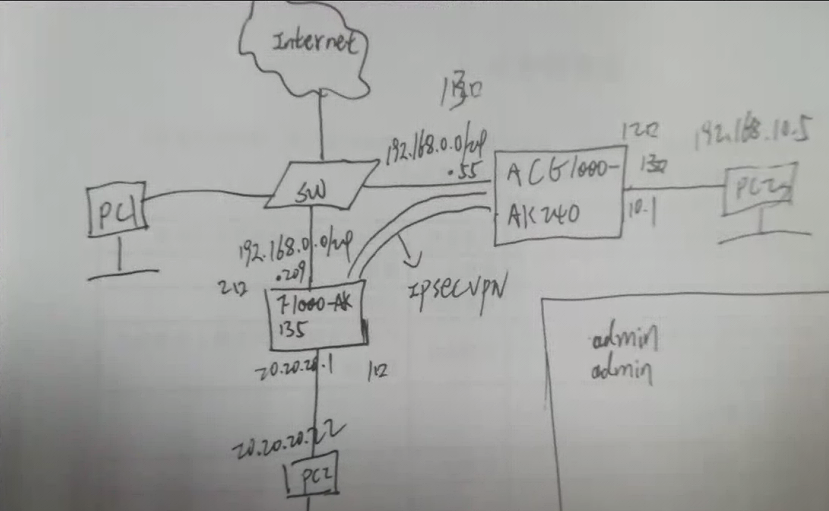 Internet
192.168.0.0/24
.55
ACG1000-
AK240
192.168.10.5
10.1
PC1
SW
192.168.0.0/24
.209
IPSECVPN
F1000-AK
135
20.20.20.1
20.20.20.22
PC2
admin
admin